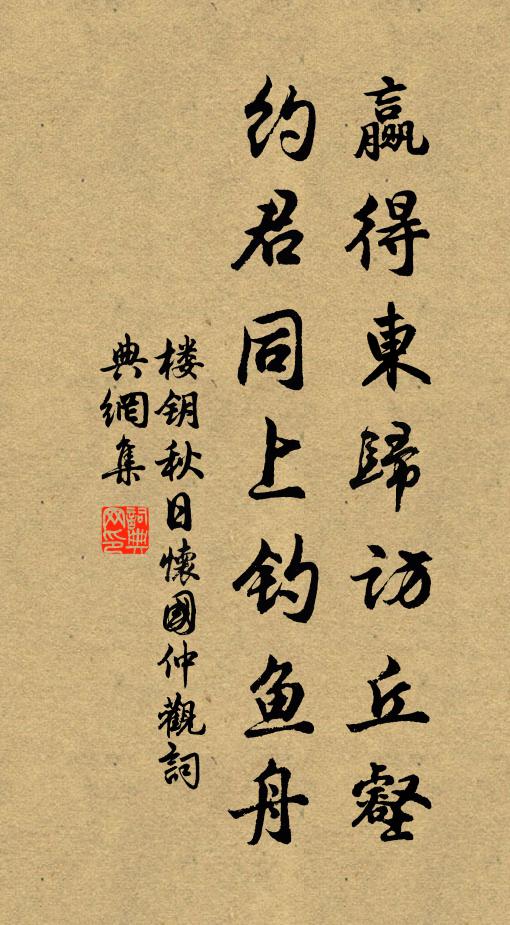 赢得東歸訪丘壑
约君同上钓鱼舟
楼钥秋日懷國仲觀詞
典網集
詞典網印